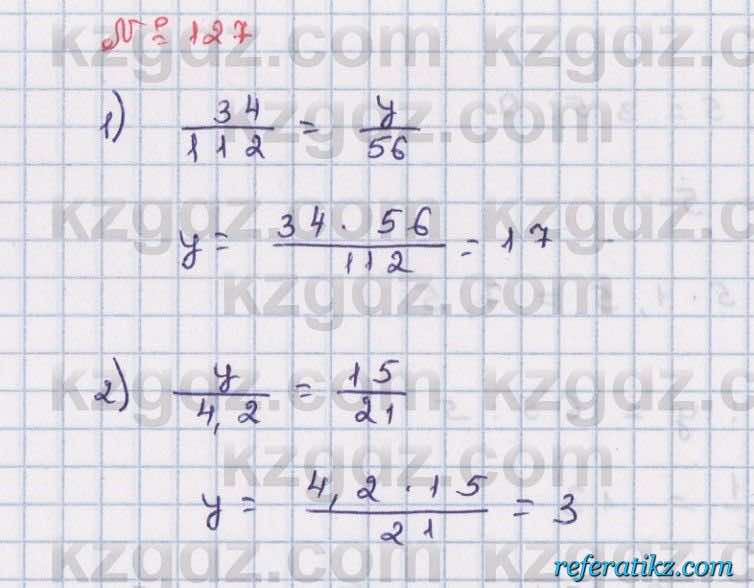 № 127
1) 34/112 = y/56
y = 34 · 56/112 = 17
2) y/4,2 = 15/21
y = 4,2 · 15/21 = 3
kzgdz.com
referatikz.com